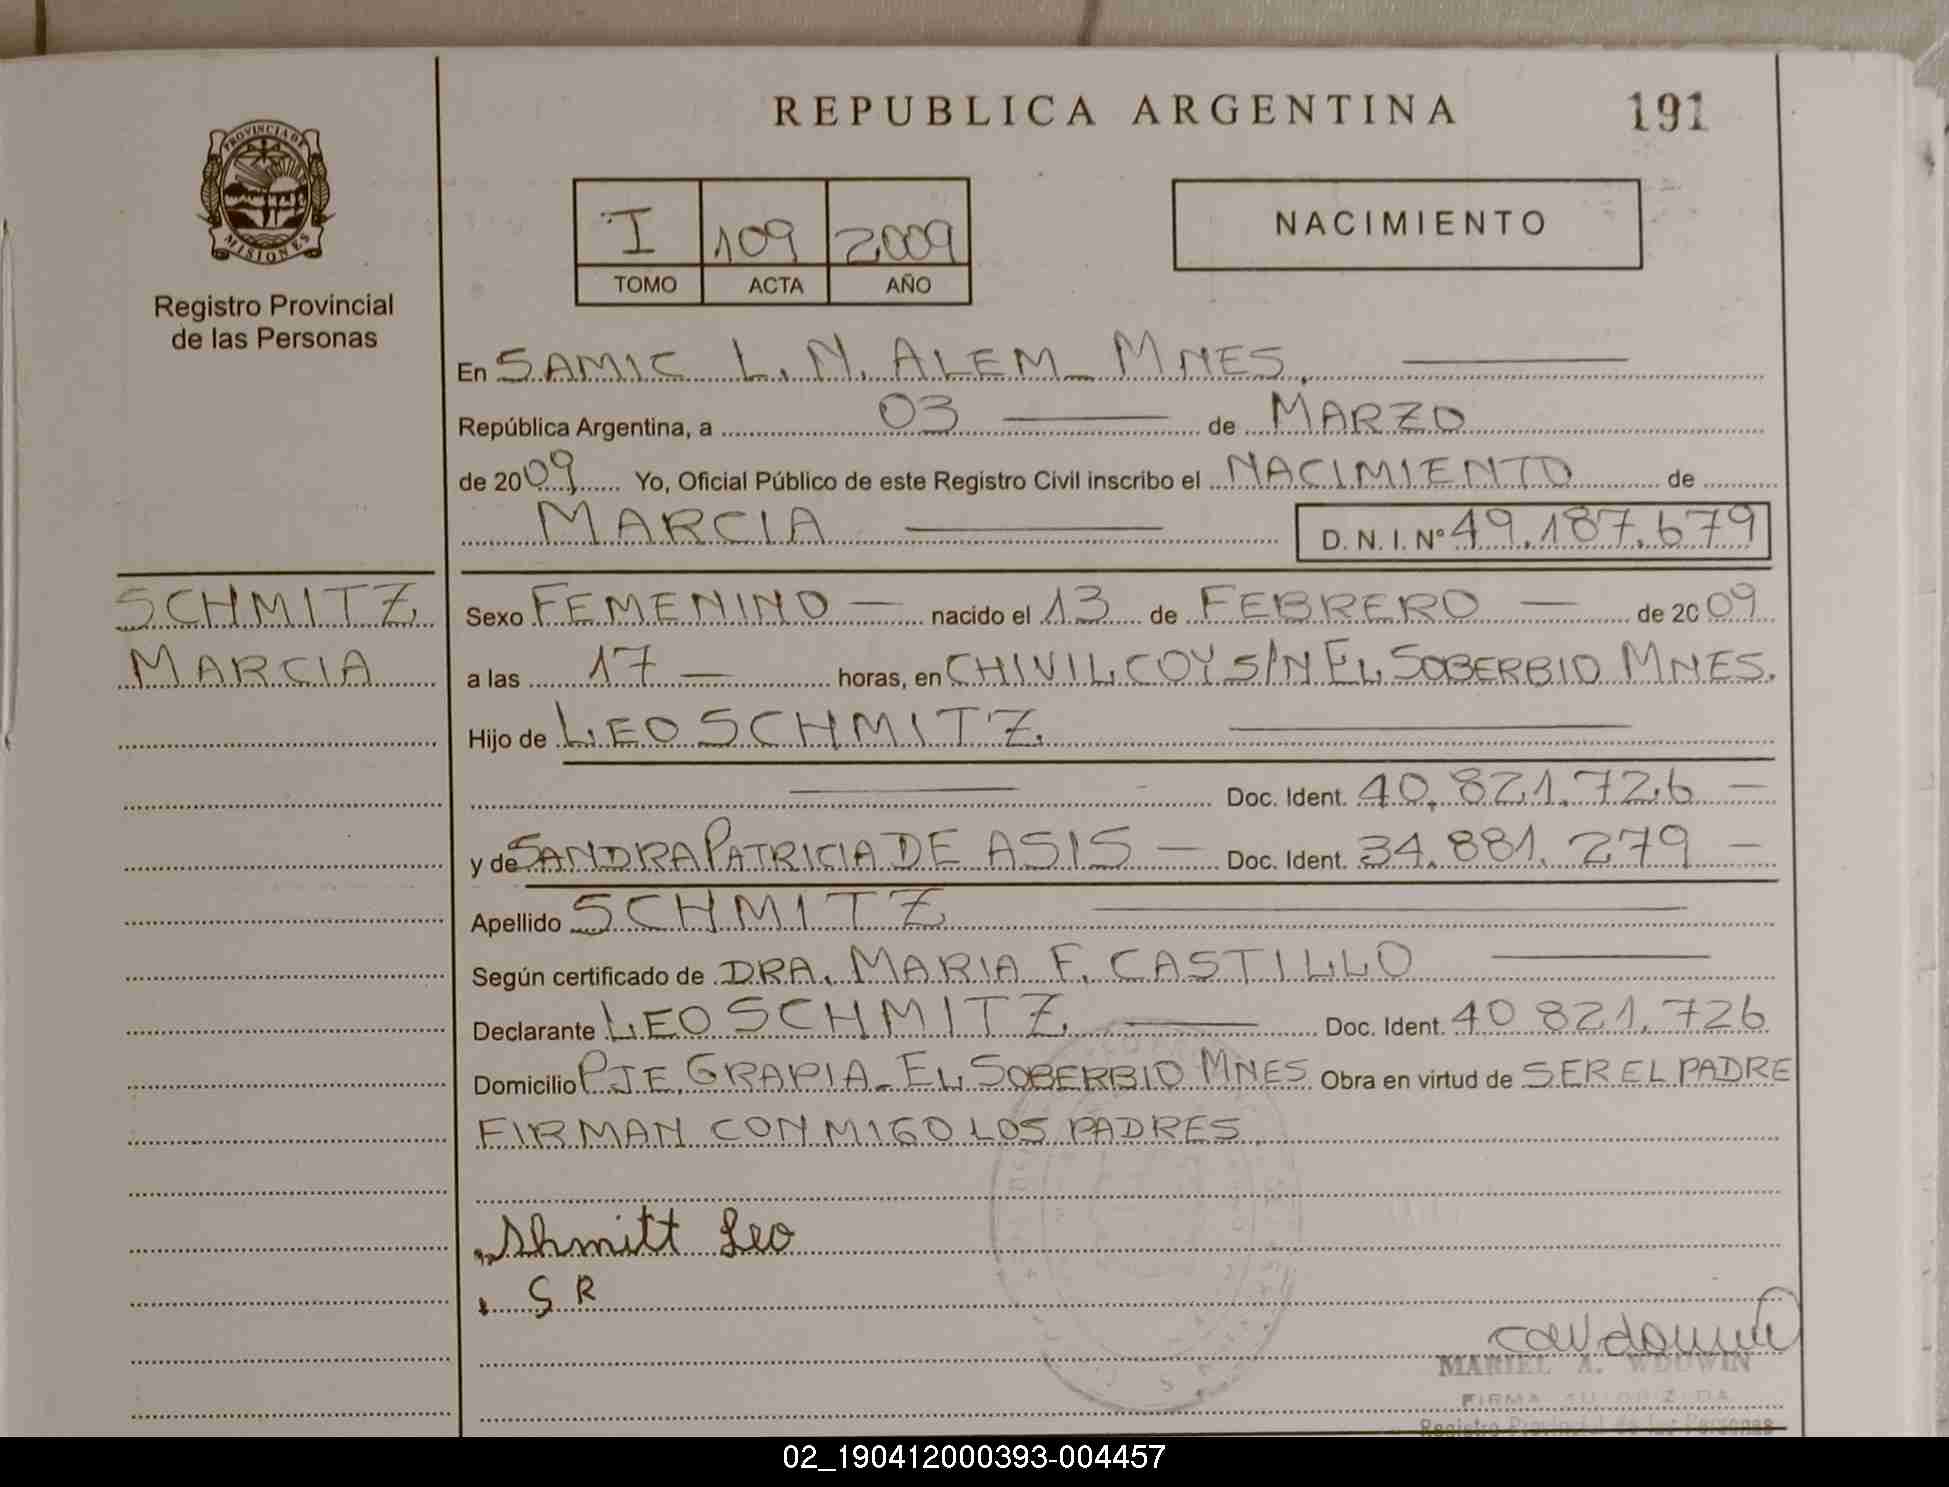 REPUBLICA ARGENTINA
191
PROVINCIA DE
MISIONES
Registro Provincial
de las Personas
I 109 2009
TOMO ACTA AÑO
NACIMIENTO
En SAMIC L. N. ALEM - MNES.
República Argentina, a 03 de MARZO
de 2009 Yo, Oficial Público de este Registro Civil inscribo el NACIMIENTO de
MARCIA D. N. I. Nº 49.187.679
SCHMITZ
MARCIA
Sexo FEMENINO — nacido el 13 de FEBRERO — de 2009
a las 17 — horas, en CHIVILCOY S/N EL SOBERBIO MNES.
Hijo de LEO SCHMITZ.
Doc. Ident. 40.821.726 —
y de SANDRA PATRICIA DE ASIS — Doc. Ident. 34.881.279 —
Apellido SCHMITZ
Según certificado de DRA. MARIA F. CASTILLO
Declarante LEO SCHMITZ Doc. Ident. 40 821.726
Domicilio PJE. GRAPIA - EL SOBERBIO MNES Obra en virtud de SER EL PADRE
FIRMAN CONMIGO LOS PADRES
Shmitt Leo
S R
MARIEL A. WDOWIN
FIRMA AUTORIZADA
Registro Provincial de las Personas
02_190412000393-004457